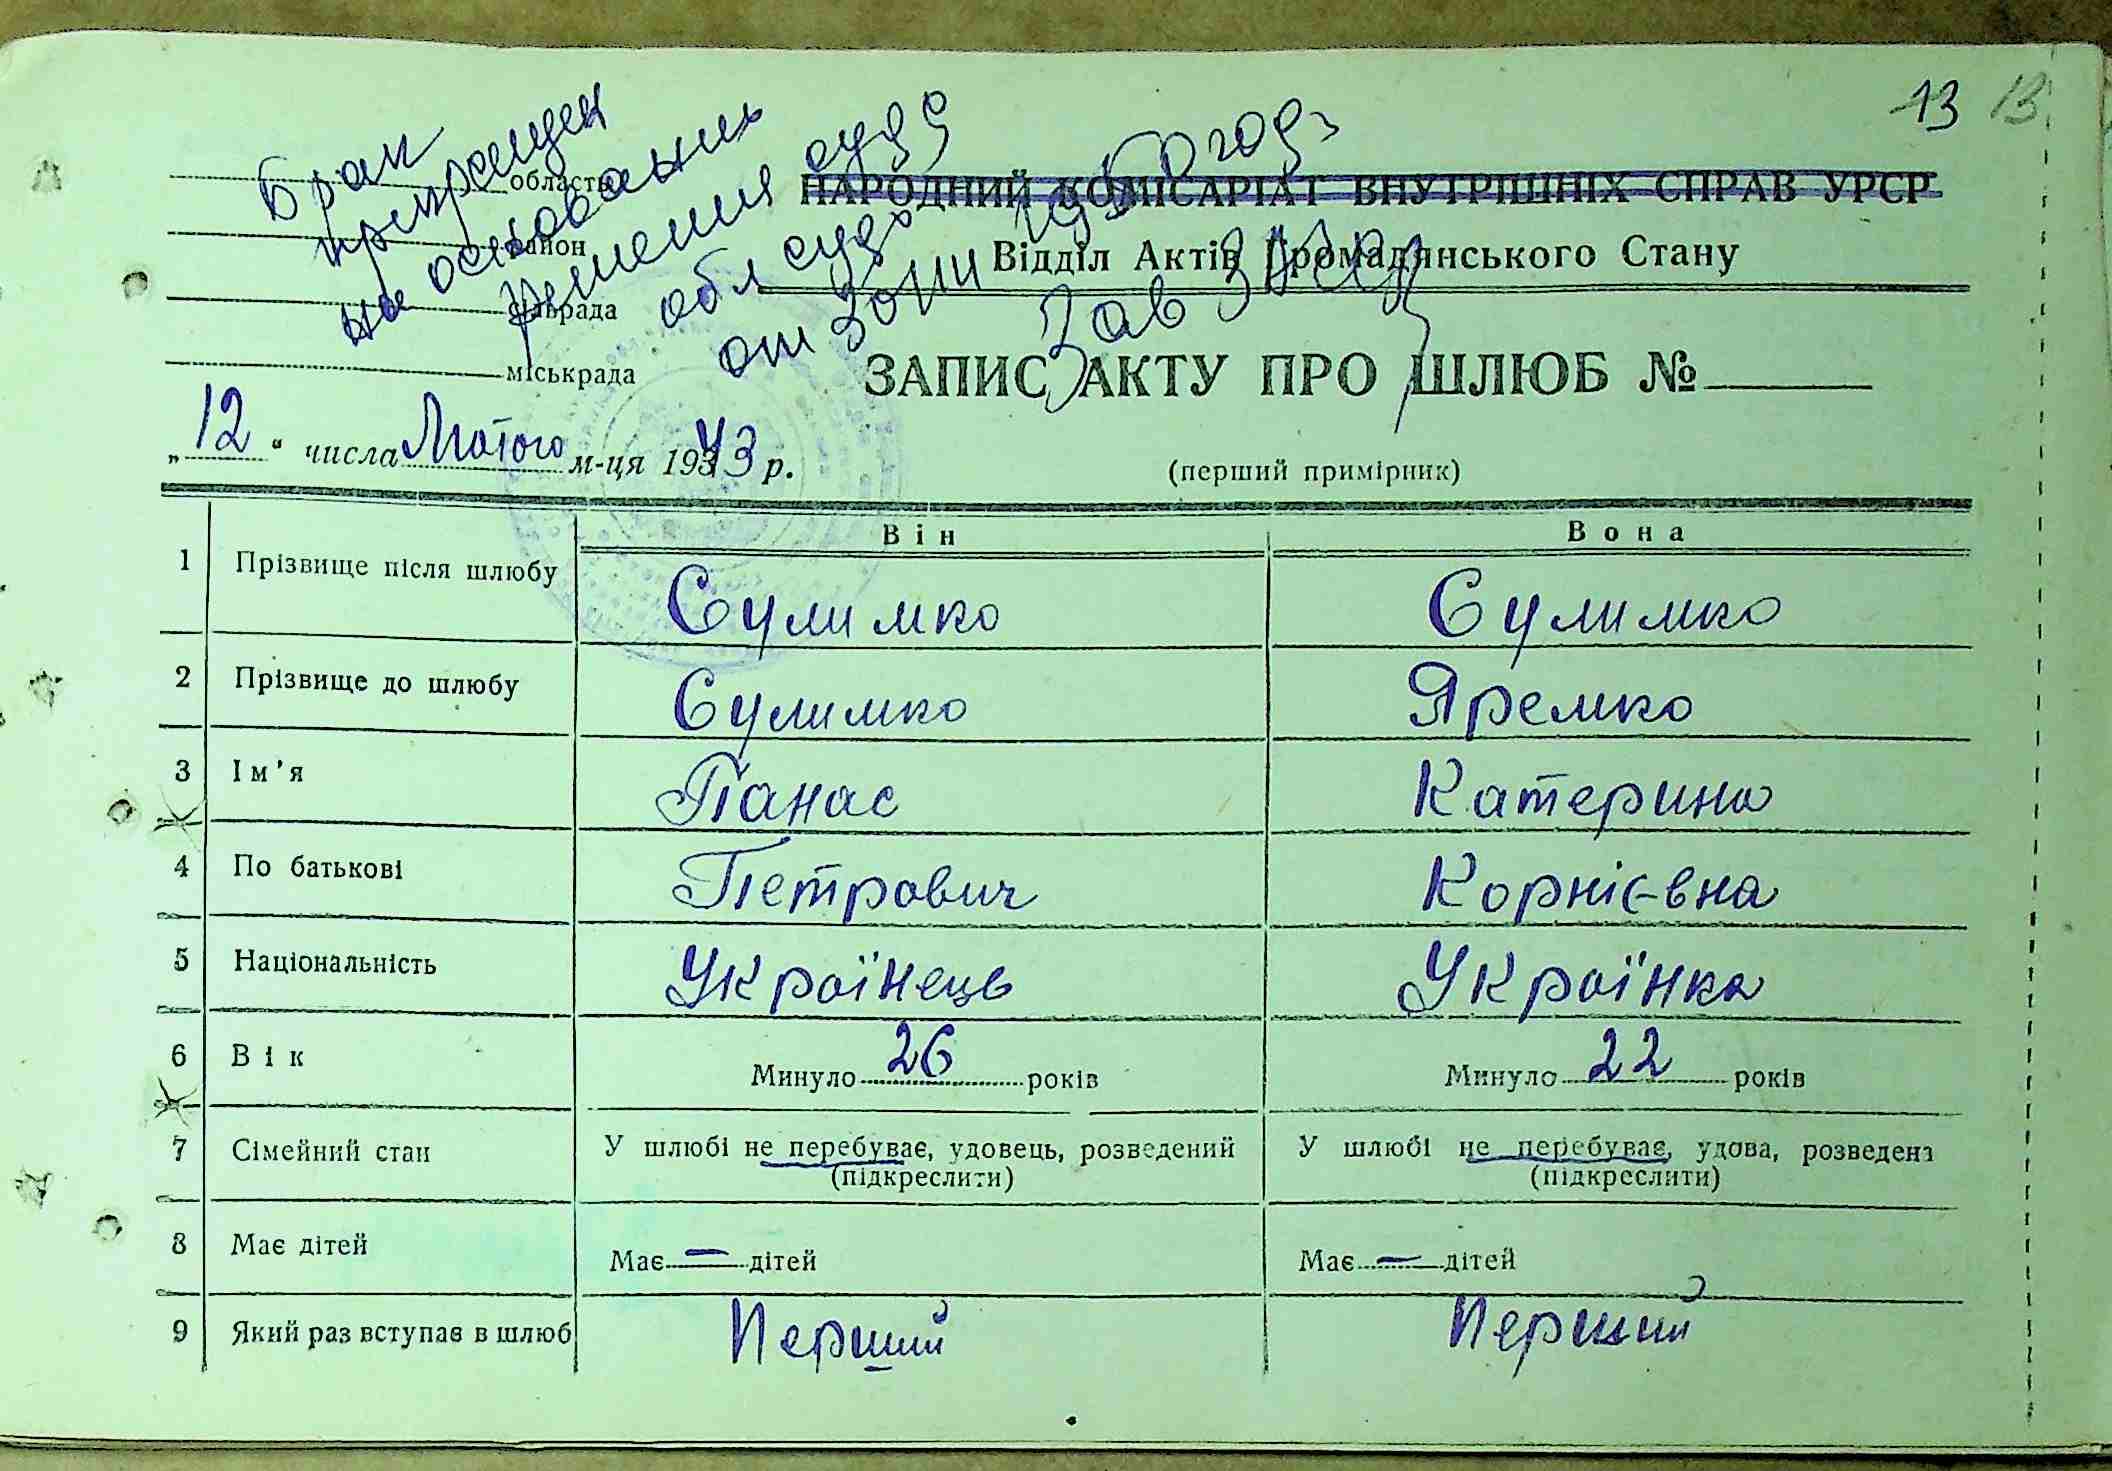 13 13
Брак
прекращен
на основании
решения суда
обл суда
от 3011 1950 года
Зав ЗАГС
область
район
сільрада
міськрада
НАРОДНИЙ КОМІСАРІАТ ВНУТРІШНІХ СПРАВ УРСР
Відділ Актів Громадянського Стану
ЗАПИС АКТУ ПРО ШЛЮБ №
„12“ числа Лютого м-ця 1943 р.
(перший примірник)
Він Вона
1 Прізвище після шлюбу Сулимко Сулимко
2 Прізвище до шлюбу Сулимко Яремко
3 Ім'я Панас Катерина
4 По батькові Петрович Корнієвна
5 Національність Українець Українка
6 Вік Минуло 26 років Минуло 22 років
7 Сімейний стан У шлюбі не перебуває, удовець, розведений У шлюбі не перебуває, удова, розведена
(підкреслити) (підкреслити)
8 Має дітей Має — дітей Має — дітей
9 Який раз вступає в шлюб Перший Перший